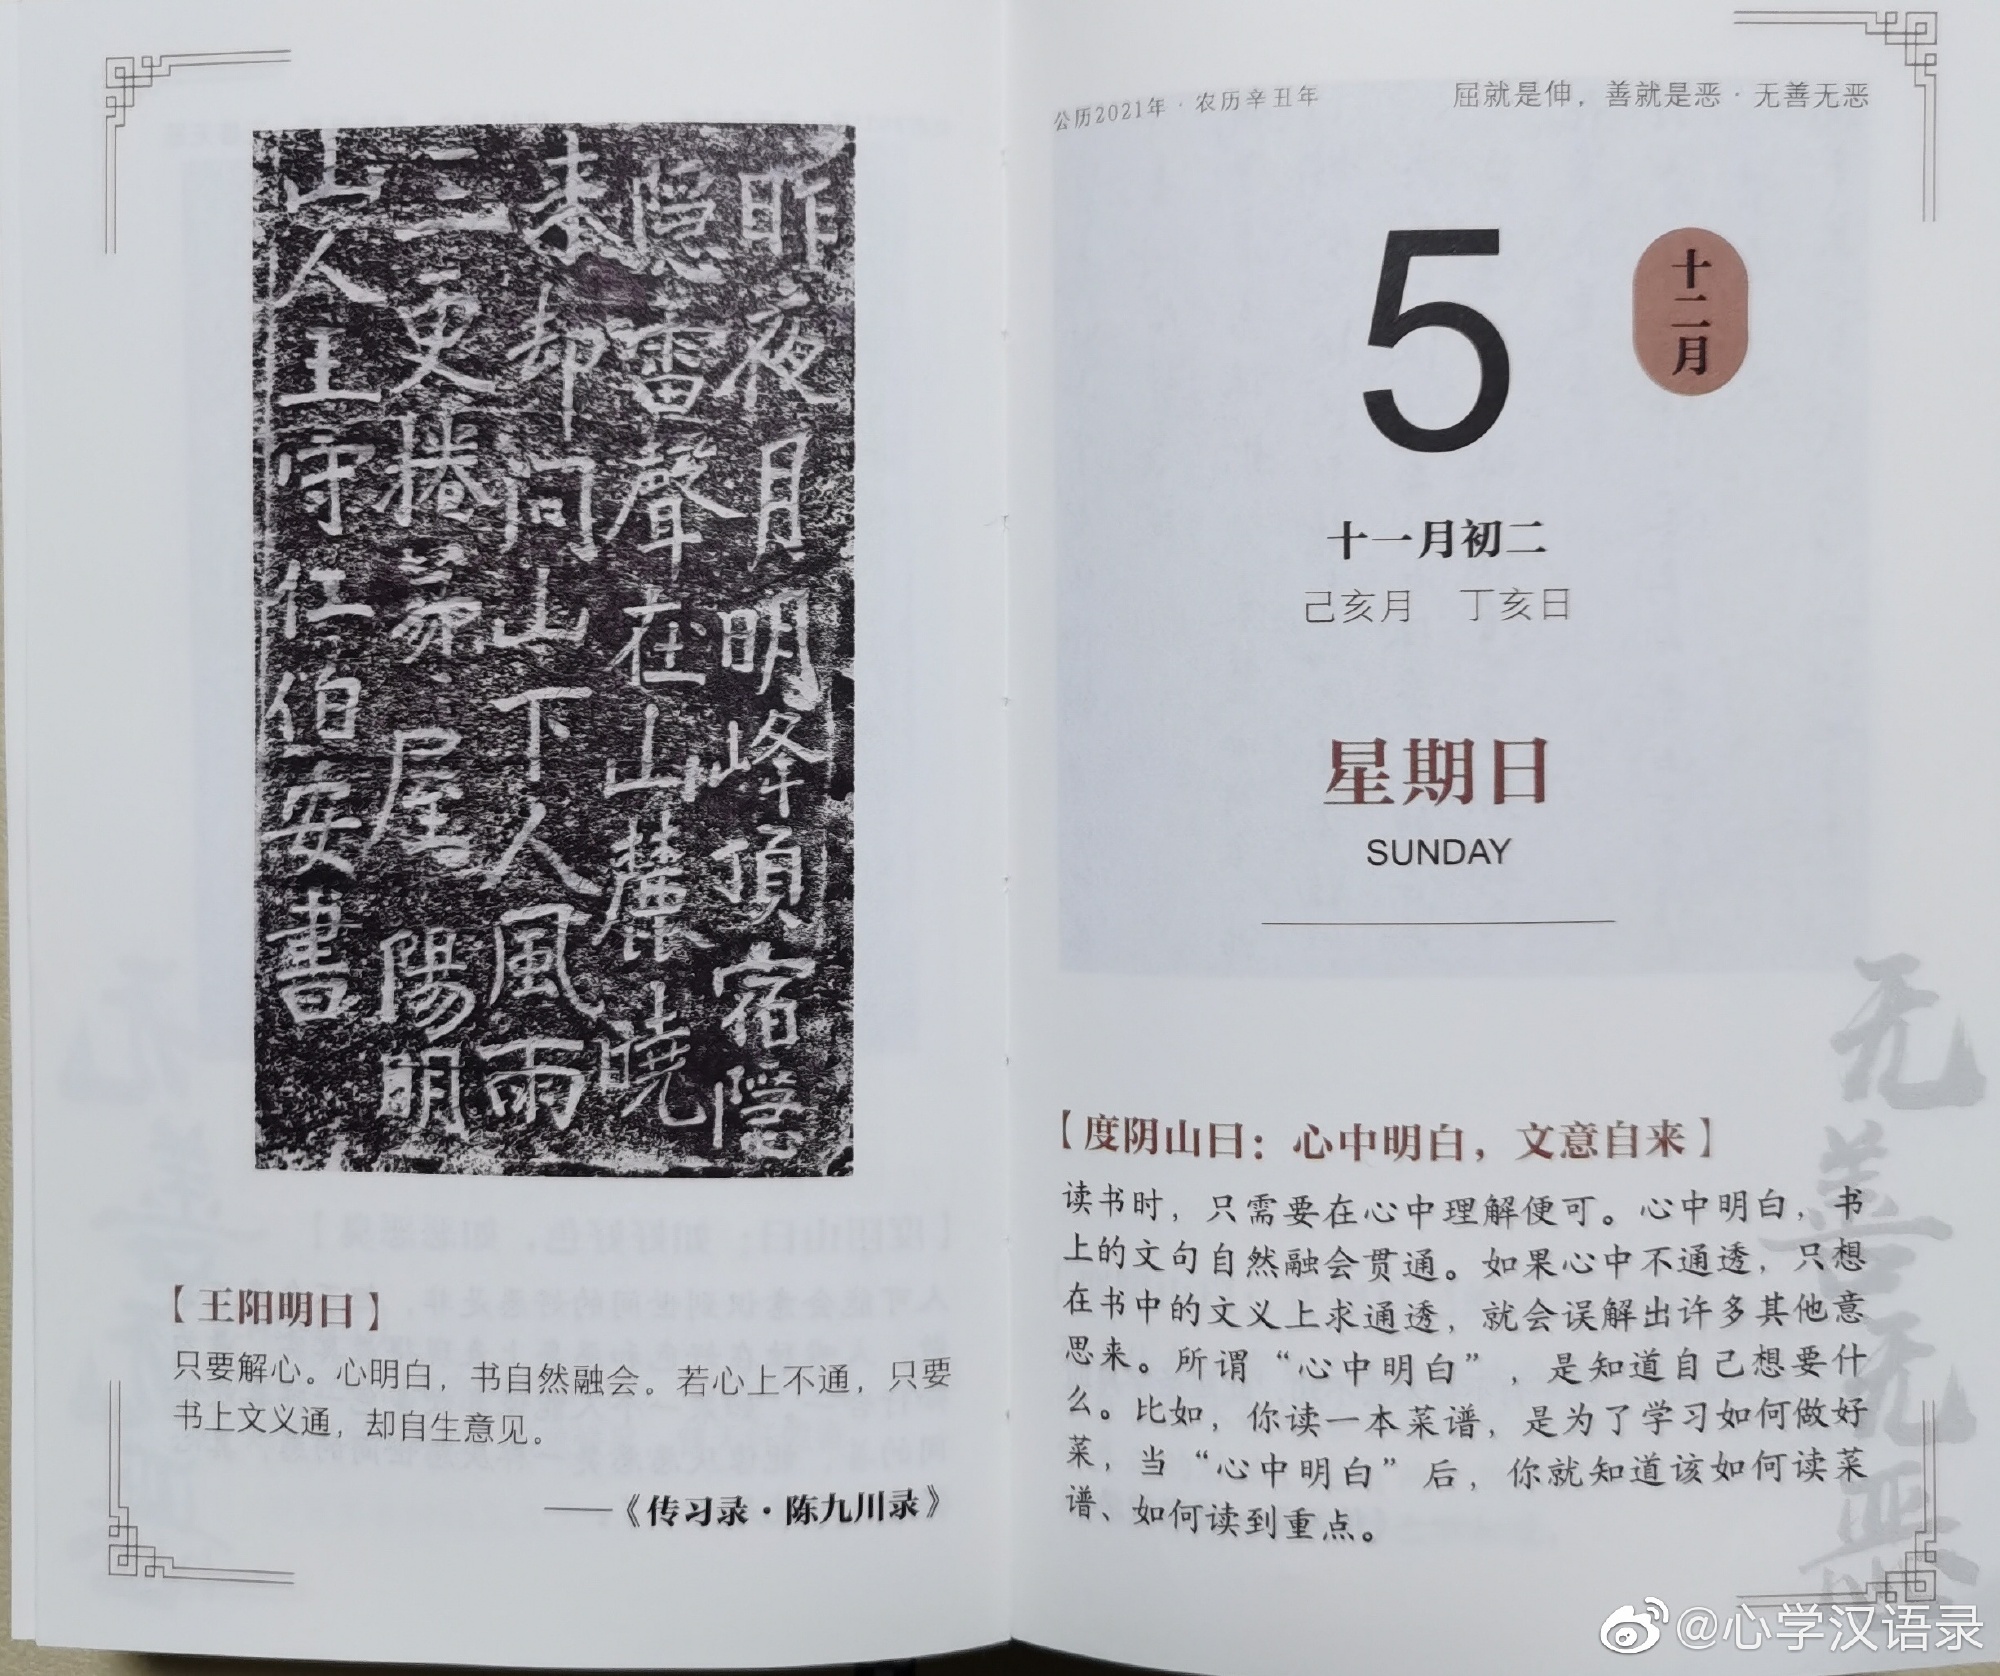 昨夜月明峰頂宿隱
隱雷聲在山麓曉
來却问山下人風雨
三更捲茅屋陽明
山人王守仁伯安書
【王阳明曰】
只要解心。心明白，书自然融会。若心上不通，只要
书上文义通，却自生意见。
——《传习录·陈九川录》
公历2021年·农历辛丑年
屈就是伸，善就是恶·无善无恶
5
十二月
十一月初二
己亥月 丁亥日
星期日
SUNDAY
【度阴山曰：心中明白，文意自来】
读书时，只需要在心中理解便可。心中明白，书
上的文句自然融会贯通。如果心中不通透，只想
在书中的文义上求通透，就会误解出许多其他意
思来。所谓“心中明白”，是知道自己想要什
么。比如，你读一本菜谱，是为了学习如何做好
菜，当“心中明白”后，你就知道该如何读菜
谱、如何读到重点。
无善无恶
@心学汉语录